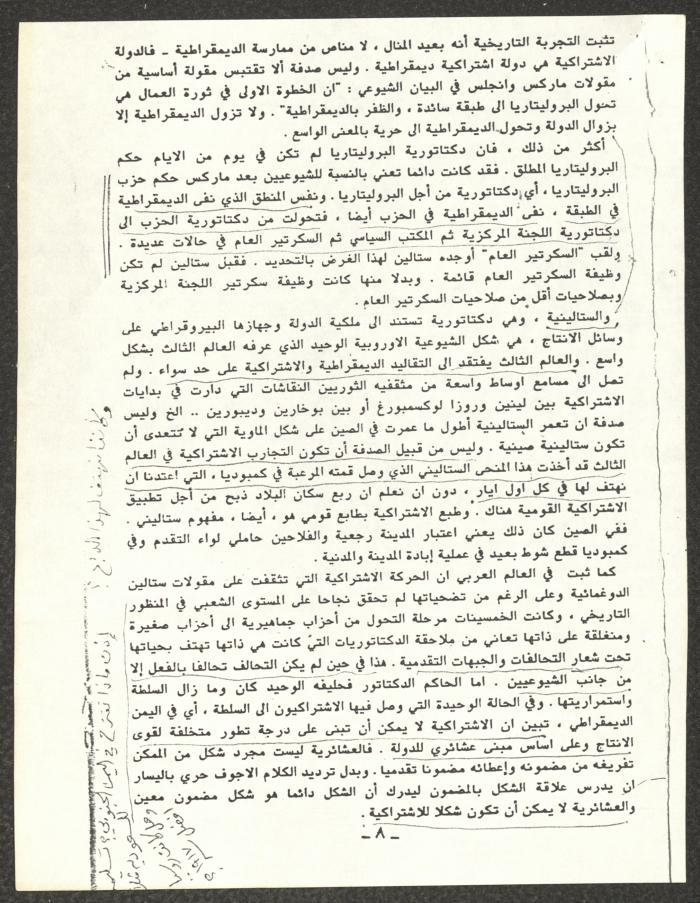 تثبت التجربة التاريخية أنه بعيد المنال ، لا مناص من ممارسة الديمقراطية ـ فالدولة
الاشتراكية هي دولة اشتراكية ديمقراطية . وليس صدفة ألا تقتبس مقولة أساسية من
مقولات ماركس وانجلس في البيان الشيوعي : "ان الخطوة الاولى في ثورة العمال هي
تحول البروليتاريا الى طبقة سائدة ، والظفر بالديمقراطية" . ولا تزول الديمقراطية إلا
بزوال الدولة وتحول الديمقراطية الى حرية بالمعنى الواسع .
أكثر من ذلك ، فان دكتاتورية البروليتاريا لم تكن في يوم من الايام حكم
البروليتاريا المطلق . فقد كانت دائما تعني بالنسبة للشيوعيين بعد ماركس حكم حزب
البروليتاريا ، أي دكتاتورية من أجل البروليتاريا . ونفس المنطق الذي نفى الديمقراطية
في الطبقة ، نفى الديمقراطية في الحزب أيضا ، فتحولت من دكتاتورية الحزب الى
دكتاتورية اللجنة المركزية ثم المكتب السياسي ثم السكرتير العام في حالات عديدة .
ولقب "السكرتير العام" أوجده ستالين لهذا الغرض بالتحديد . فقبل ستالين لم تكن
وظيفة السكرتير العام قائمة . وبدلا منها كانت وظيفة سكرتير اللجنة المركزية
وبصلاحيات أقل من صلاحيات السكرتير العام .
والستالينية ، وهي دكتاتورية تستند الى ملكية الدولة وجهازها البيروقراطي على
وسائل الانتاج ، هي شكل الشيوعية الاوروبية الوحيد الذي عرفه العالم الثالث بشكل
واسع . والعالم الثالث يفتقد الى التقاليد الديمقراطية والاشتراكية على حد سواء . ولم
تصل الى مسامع اوساط واسعة من مثقفيه الثوريين النقاشات التي دارت في بدايات
الاشتراكية بين لينين وروزا لوكسمبورغ أو بين بوخارين وديبورين .. الخ وليس
صدفة ان تعمر الستالينية أطول ما عمرت في الصين على شكل الماوية التي لا تتعدى أن
تكون ستالينية صينية . وليس من قبيل الصدفة أن تكون التجارب الاشتراكية في العالم
الثالث قد أخذت هذا المنحى الستاليني الذي وصل قمته المرعبة في كمبوديا ، التي اعتدنا ان
نهتف لها في كل اول ايار ، دون ان نعلم ان ربع سكان البلاد ذبح من أجل تطبيق
الاشتراكية القومية هناك . وطبع الاشتراكية بطابع قومي هو ، أيضا ، مفهوم ستاليني .
ففي الصين كان ذلك يعني اعتبار المدينة رجعية والفلاحين حاملي لواء التقدم وفي
كمبوديا قطع شوط بعيد في عملية إبادة المدينة والمدنية .
كما ثبت في العالم العربي ان الحركة الاشتراكية التي تثقفت على مقولات ستالين
الدوغمائية وعلى الرغم من تضحياتها لم تحقق نجاحا على المستوى الشعبي في المنظور
التاريخي ، وكانت الخمسينات مرحلة التحول من أحزاب جماهيرية الى أحزاب صغيرة
ومنغلقة على ذاتها تعاني من ملاحقة الدكتاتوريات التي كانت هي ذاتها تهتف بحياتها
تحت شعار التحالفات والجبهات التقدمية . هذا في حين لم يكن التحالف تحالفا بالفعل إلا
من جانب الشيوعيين . اما الحاكم الدكتاتور فحليفه الوحيد كان وما زال السلطة
واستمراريتها . وفي الحالة الوحيدة التي وصل فيها الاشتراكيون الى السلطة ، أي في اليمن
الديمقراطي ، تبين ان الاشتراكية لا يمكن أن تبنى على درجة تطور متخلفة لقوى
الانتاج وعلى اساس مبنى عشائري للدولة . فالعشائرية ليست مجرد شكل من الممكن
تفريغه من مضمونه وإعطائه مضمونا تقدميا . وبدل ترديد الكلام الاجوف حري باليسار
ان يدرس علاقة الشكل بالمضمون ليدرك أن الشكل دائما هو شكل مضمون معين
والعشائرية لا يمكن أن تكون شكلا للاشتراكية .
ـ ٨ ـ
إذن ماذا نقترح في اليمن الجنوبي ؟